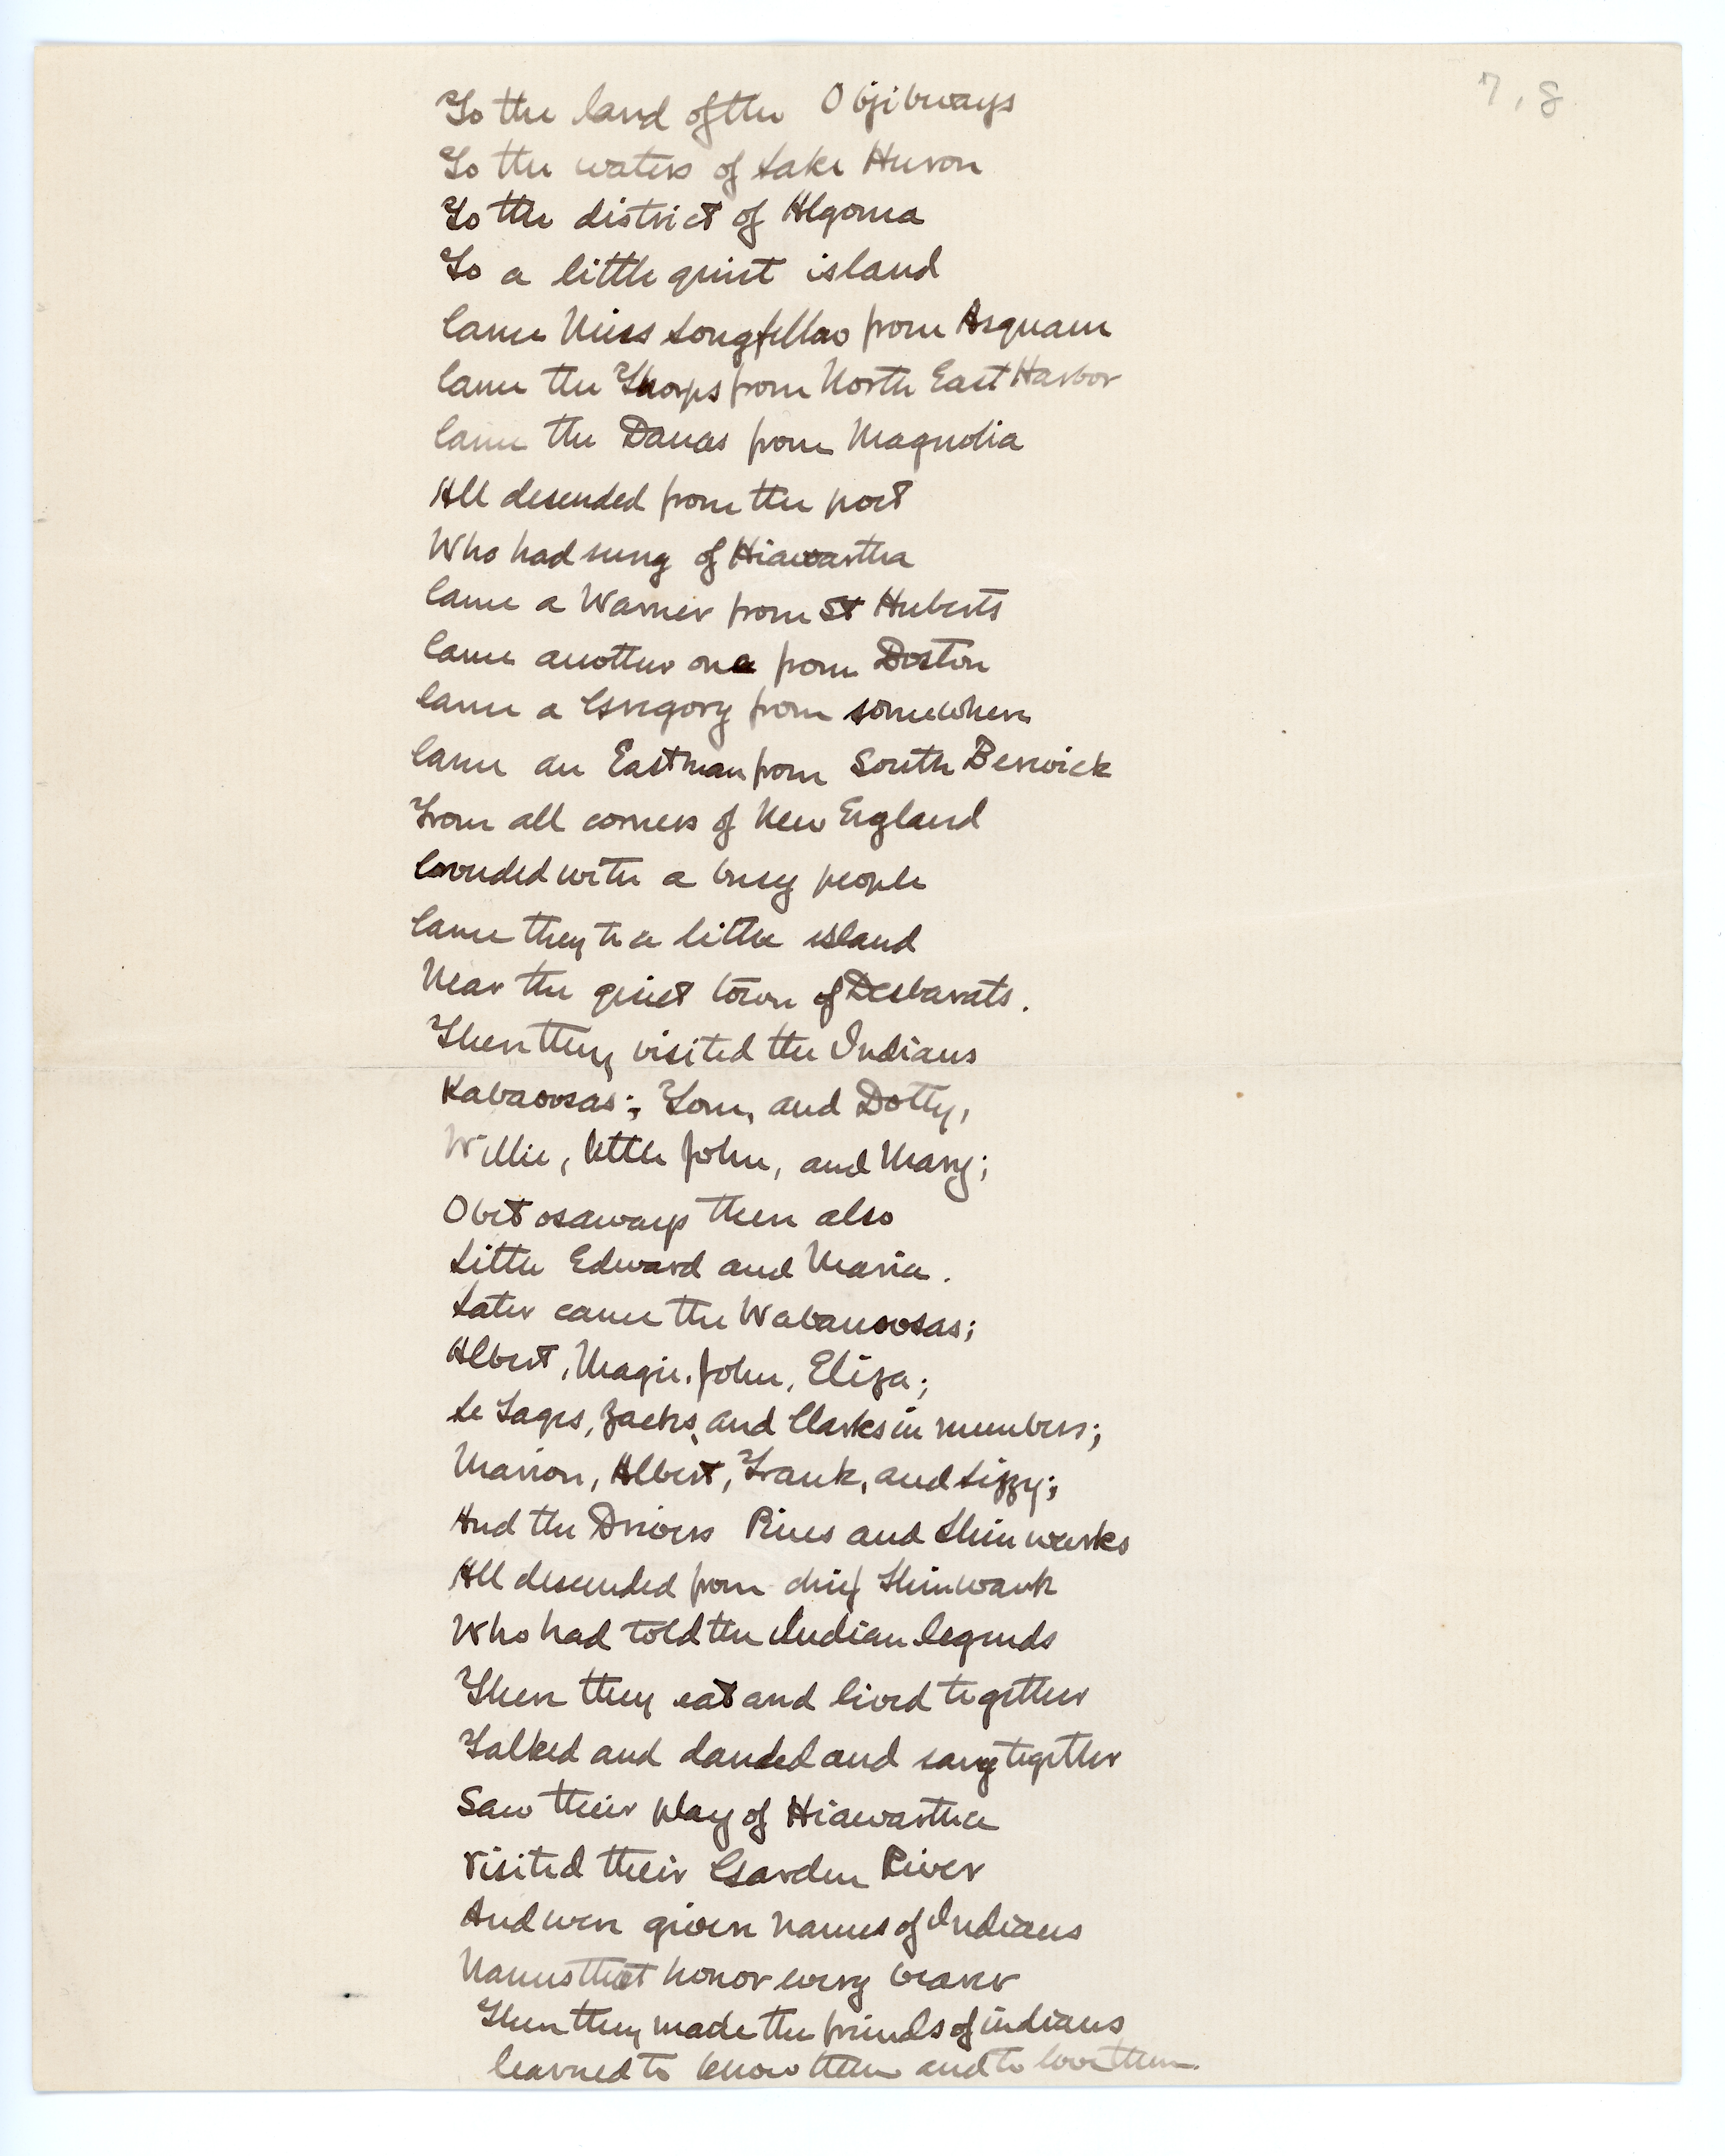 7, 8
To the land of the Objibways
To the waters of Lake Huron
To the district of Algoma
To a little quiet island
Came Miss Longfellow from Asquam
Came the Thorps from North East Harbor
Came the Danas from Magnolia
All desended from the poet
Who had sung of Hiawatha
Came a Warner from St Huberts
Came another one from Boston
Came a Gregory from somewhere
Came an Eastman from South Berwick
From all corners of New England
Crowded with a busy people
Came they to a little island
Near the quiet town of Desbarats.
Then they visited the Indians
Kabaoosas; Tom, and Dotty,
Willie, little John, and Mary;
Obetosaways then also
Little Edward and Maria.
Later came the Wabanoosas;
Albert, Magie, John, Eliza;
Le Sages, Zacks, and Clarks in numbers;
Marion, Albert, Frank, and Lizzy;
And the Drivers Pines and Shinwauks
All descended from chief Shinwauk
Who had told the Indian legends
Then they eat and lived together
Talked and danded and sang together
Saw their play of Hiawatha
Visited their Garden River
And were given names of Indians
Names that honor every bearer
Then they made the friends of indians
learned to know them and to love them